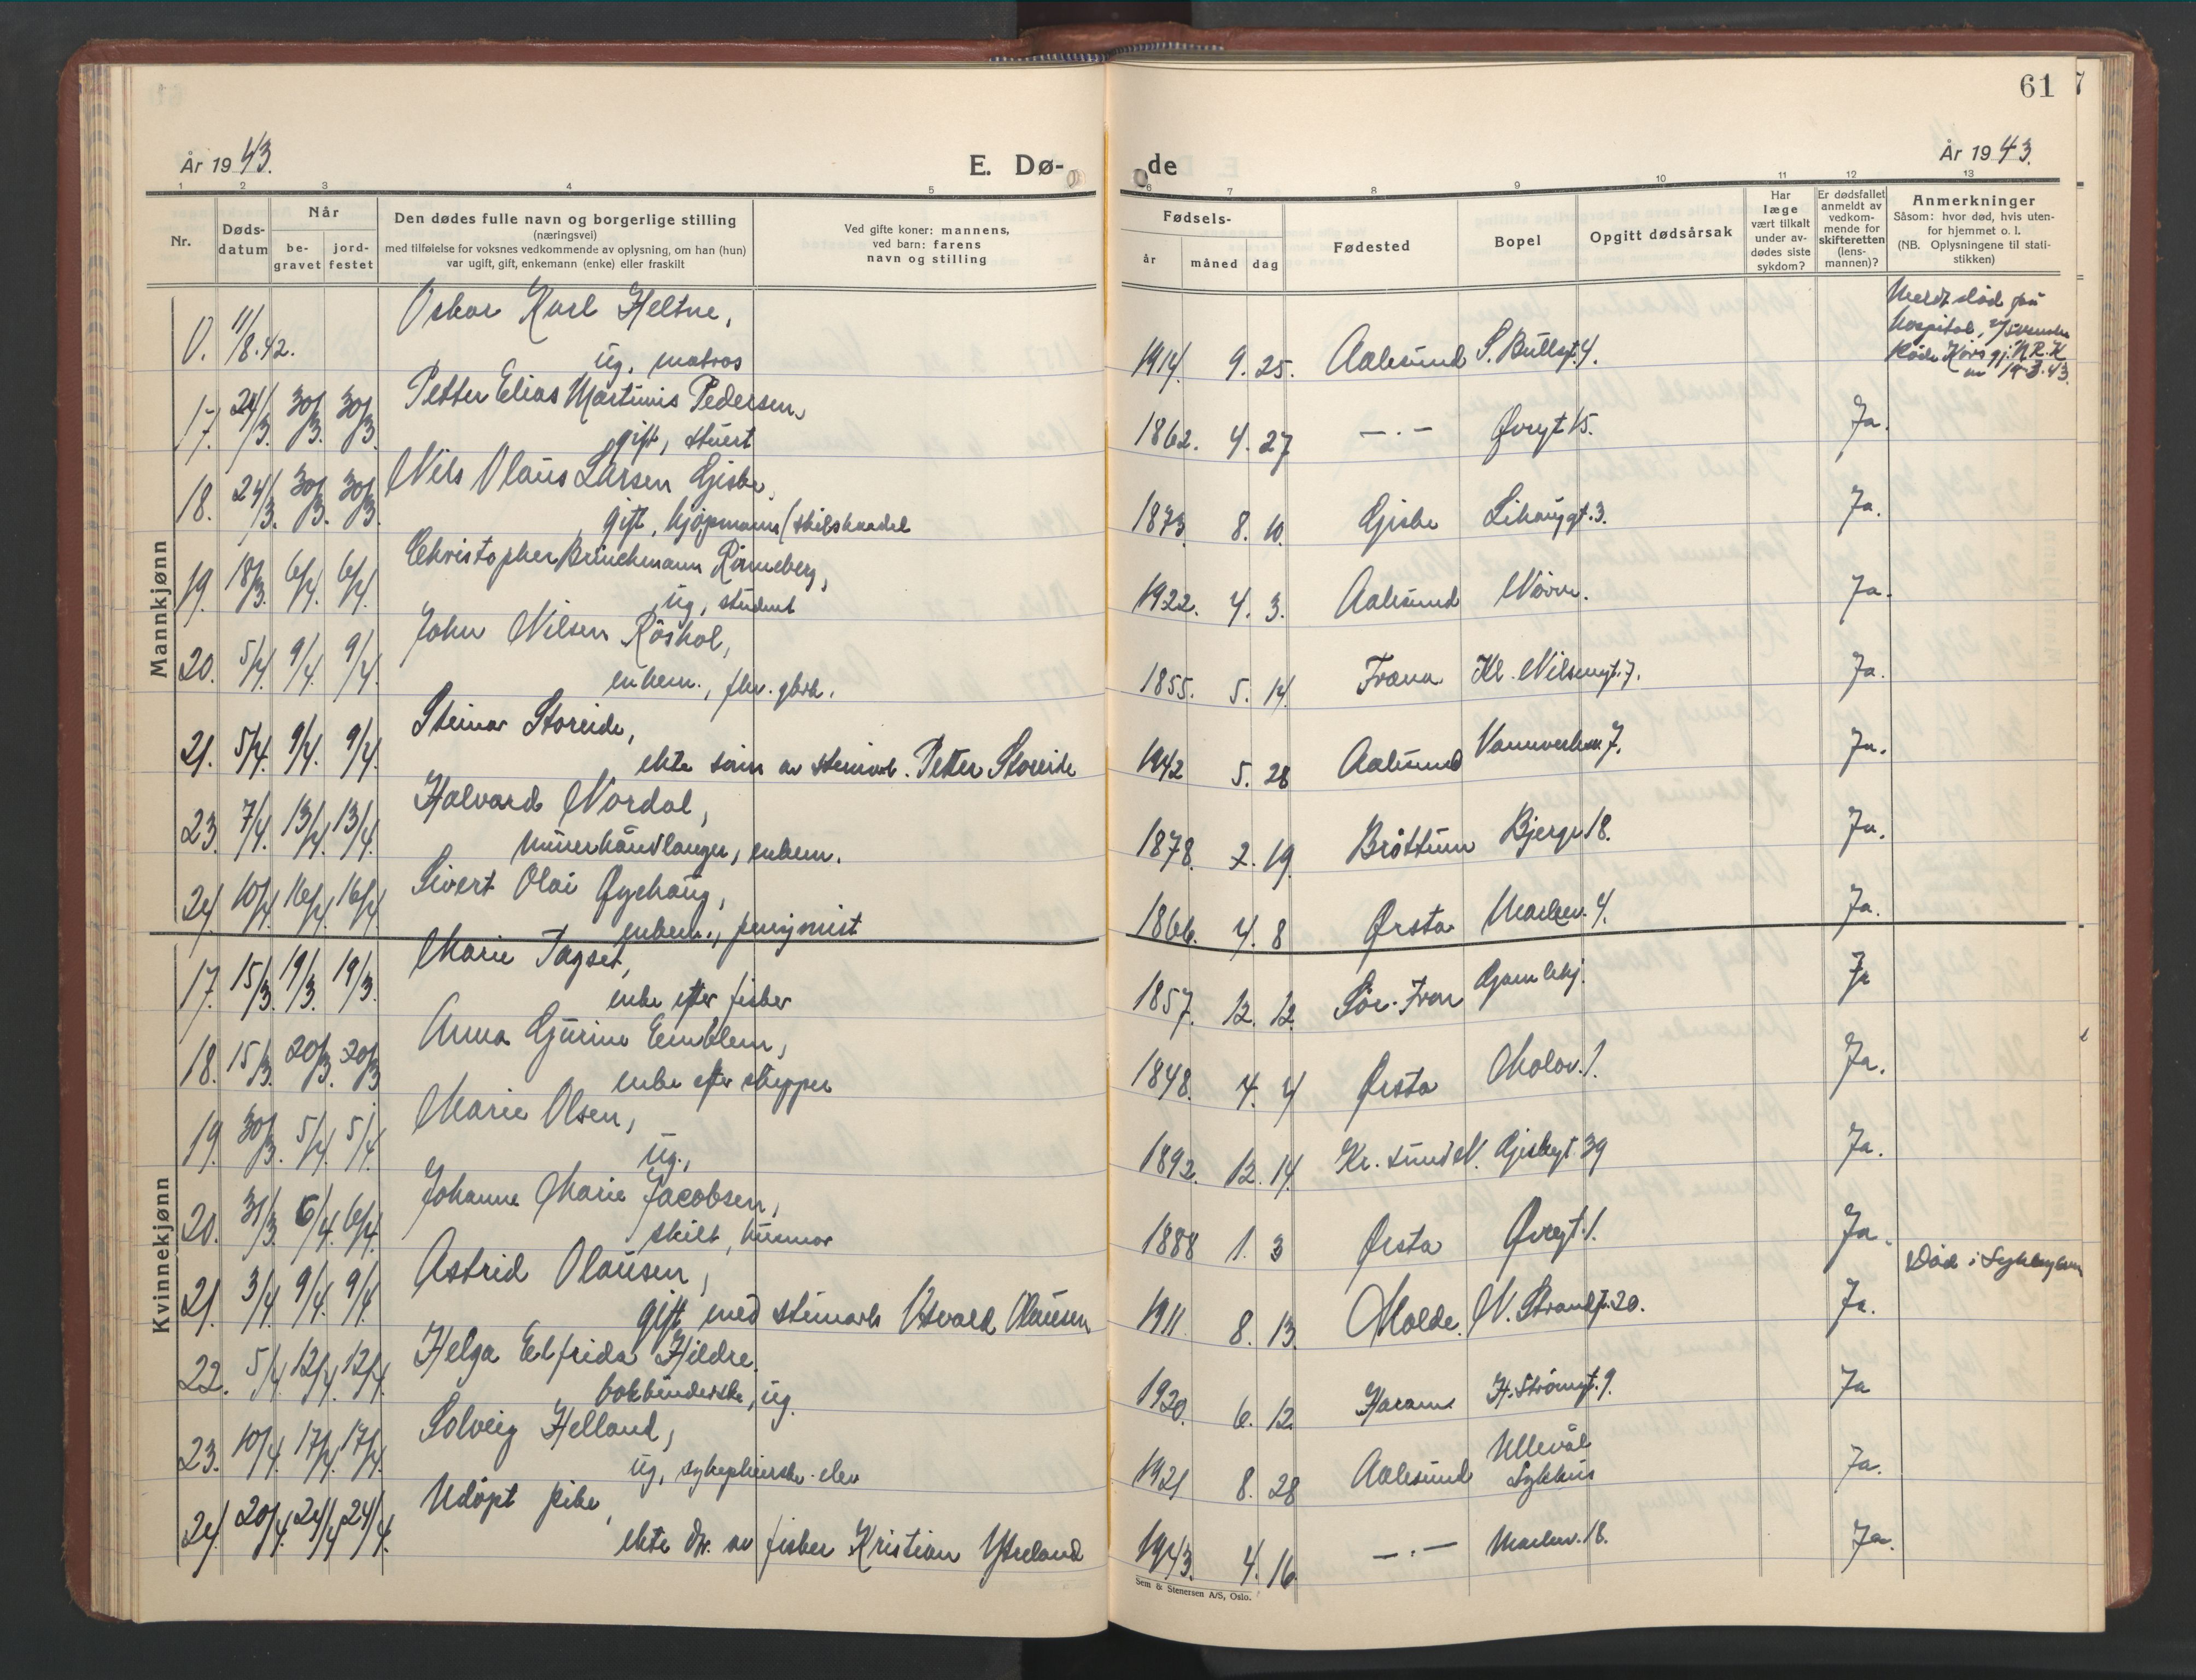 61
År 1943.
E. Dø-
de
År 1943.
1 2 3 4 5
6 7 8 9 10 11 12 13
Nr.
Døds-
datum
Når
be-
gravet
jord-
festet
Den dødes fulle navn og borgerlige stilling
(næringsvei)
med tilføielse for voksnes vedkommende av oplysning, om han (hun)
var ugift, gift, enkemann (enke) eller fraskilt
Ved gifte koner: mannens,
ved barn: farens
navn og stilling
Fødsels-
år måned dag
Fødested
Bopel
Opgitt dødsårsak
Har
læge
vært tilkalt
under av-
dødes siste
sykdom?
Er dødsfallet
anmeldt av
vedkom-
mende for
skifteretten
(lens-
mannen)?
Anmerkninger
Såsom: hvor død, hvis uten-
for hjemmet o. l.
(NB. Oplysningene til stati-
stikken)
Mannkjønn
0. 11/8.42. Oskar Karl Heltne,
ug. matros
1914. 9. 25. Aalesund S. Bullsgt. 4.
død på
hospital,
Røde Kors gj. N.R.K
17. 24/3. 30/3. 30/3. Petter Elias Martinus Pedersen,
gift, stuert
1862. 4. 27 —.— Øvregt 15. Ja.
18. 24/3. 30/3. 30/3. Nils Olaus Larsen Giske,
gift, kjøpmann
1873. 8. 10. Giske Lihauggt. 3. Ja.
19. 18/3. 6/4. 6/4. Christopher Brinchmann Rønneberg,
ug, student
1922. 4. 3. Aalesund Nørve. Ja.
20. 5/4. 9/4. 9/4. John Nilsen Röshol,
enkem., fhv. gbrk.
1855. 5. 14. Fræna Kl. Nilsengt. 7. Ja.
21. 5/4. 9/4. 9/4. Steinar Storeide,
ekte sönn av steinarb. Petter Storeide
1942 5. 28 Aalesund 7. Ja.
23. 7/4. 13/4. 13/4. Halvard Nordal,
murerhåndlanger, enkem.
1878. 2. 19. Bröttum 18. Ja.
24. 10/4. 16/4. 16/4. Sivert Olai Øyehaug,
enkem., pensjonist
1866. 4. 8 Ørsta 4. Ja.
Kvinnekjønn
17. 15/3. 19/3. 19/3. Marie Tagset,
enke efter fisker
1857. 12. 12. Gamlehj. Ja
18. 15/3. 20/3. 20/3 Anna Gjurine Emblem,
enke efter skipper
1848. 4. 4 Ørsta Molov. 1. Ja.
19. 30/3. 5/4. 5/4. Marie Olsen,
ug.,
1892. 12. 14. Kr. sund N. Giskegt. 39 Ja.
20. 31/3. 6/4. 6/4. Johanne Marie Jacobsen,
skilt, husmor
1888 1. 3 Ørsta Øvregt. 1. Ja.
21. 3/4. 9/4. 9/4. Astrid Olausen,
gift med steinarb Osvald Olausen
1911 8. 13. Molde. N. Strandgt. 20. Ja.
Död i Sykkylven
22. 5/4. 12/4. 12/4. Helga Elfrida Hildre.
bokbinderske, ug.
1920. 6. 12. Haram H. Strömgt. 9. Ja
23. 10/4. 17/4. 17/4. Solveig Helland,
ug, sykepleierske. elev
1921 8. 28 Aalesund Ullevål
Sykhus Ja.
24. 20/4. 24/4 24/4. Udöpt pike,
ekte dtr. av fisker Kristian Ytreland
1943. 4. 16. —.— 18. Ja.
Sem & Stenersen A/S, Oslo.